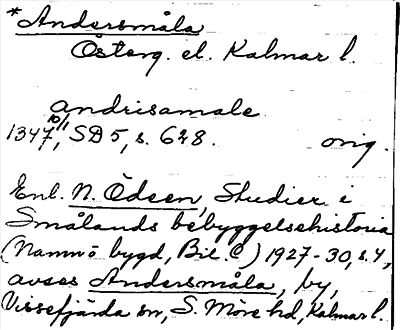 *Andersmåla
Österg. el. Kalmar l.
andrisamale
1347 10/1, SD 5, s. 628. orig.
Enl. N. Ödeen, Studier i
Smålands bebyggelsehistoria
(Namn o bygd, Bil. C) 1927-30, s. 4,
avses Andersmåla, by,
Vissefjärda sn, S. Möre hd, Kalmar l.